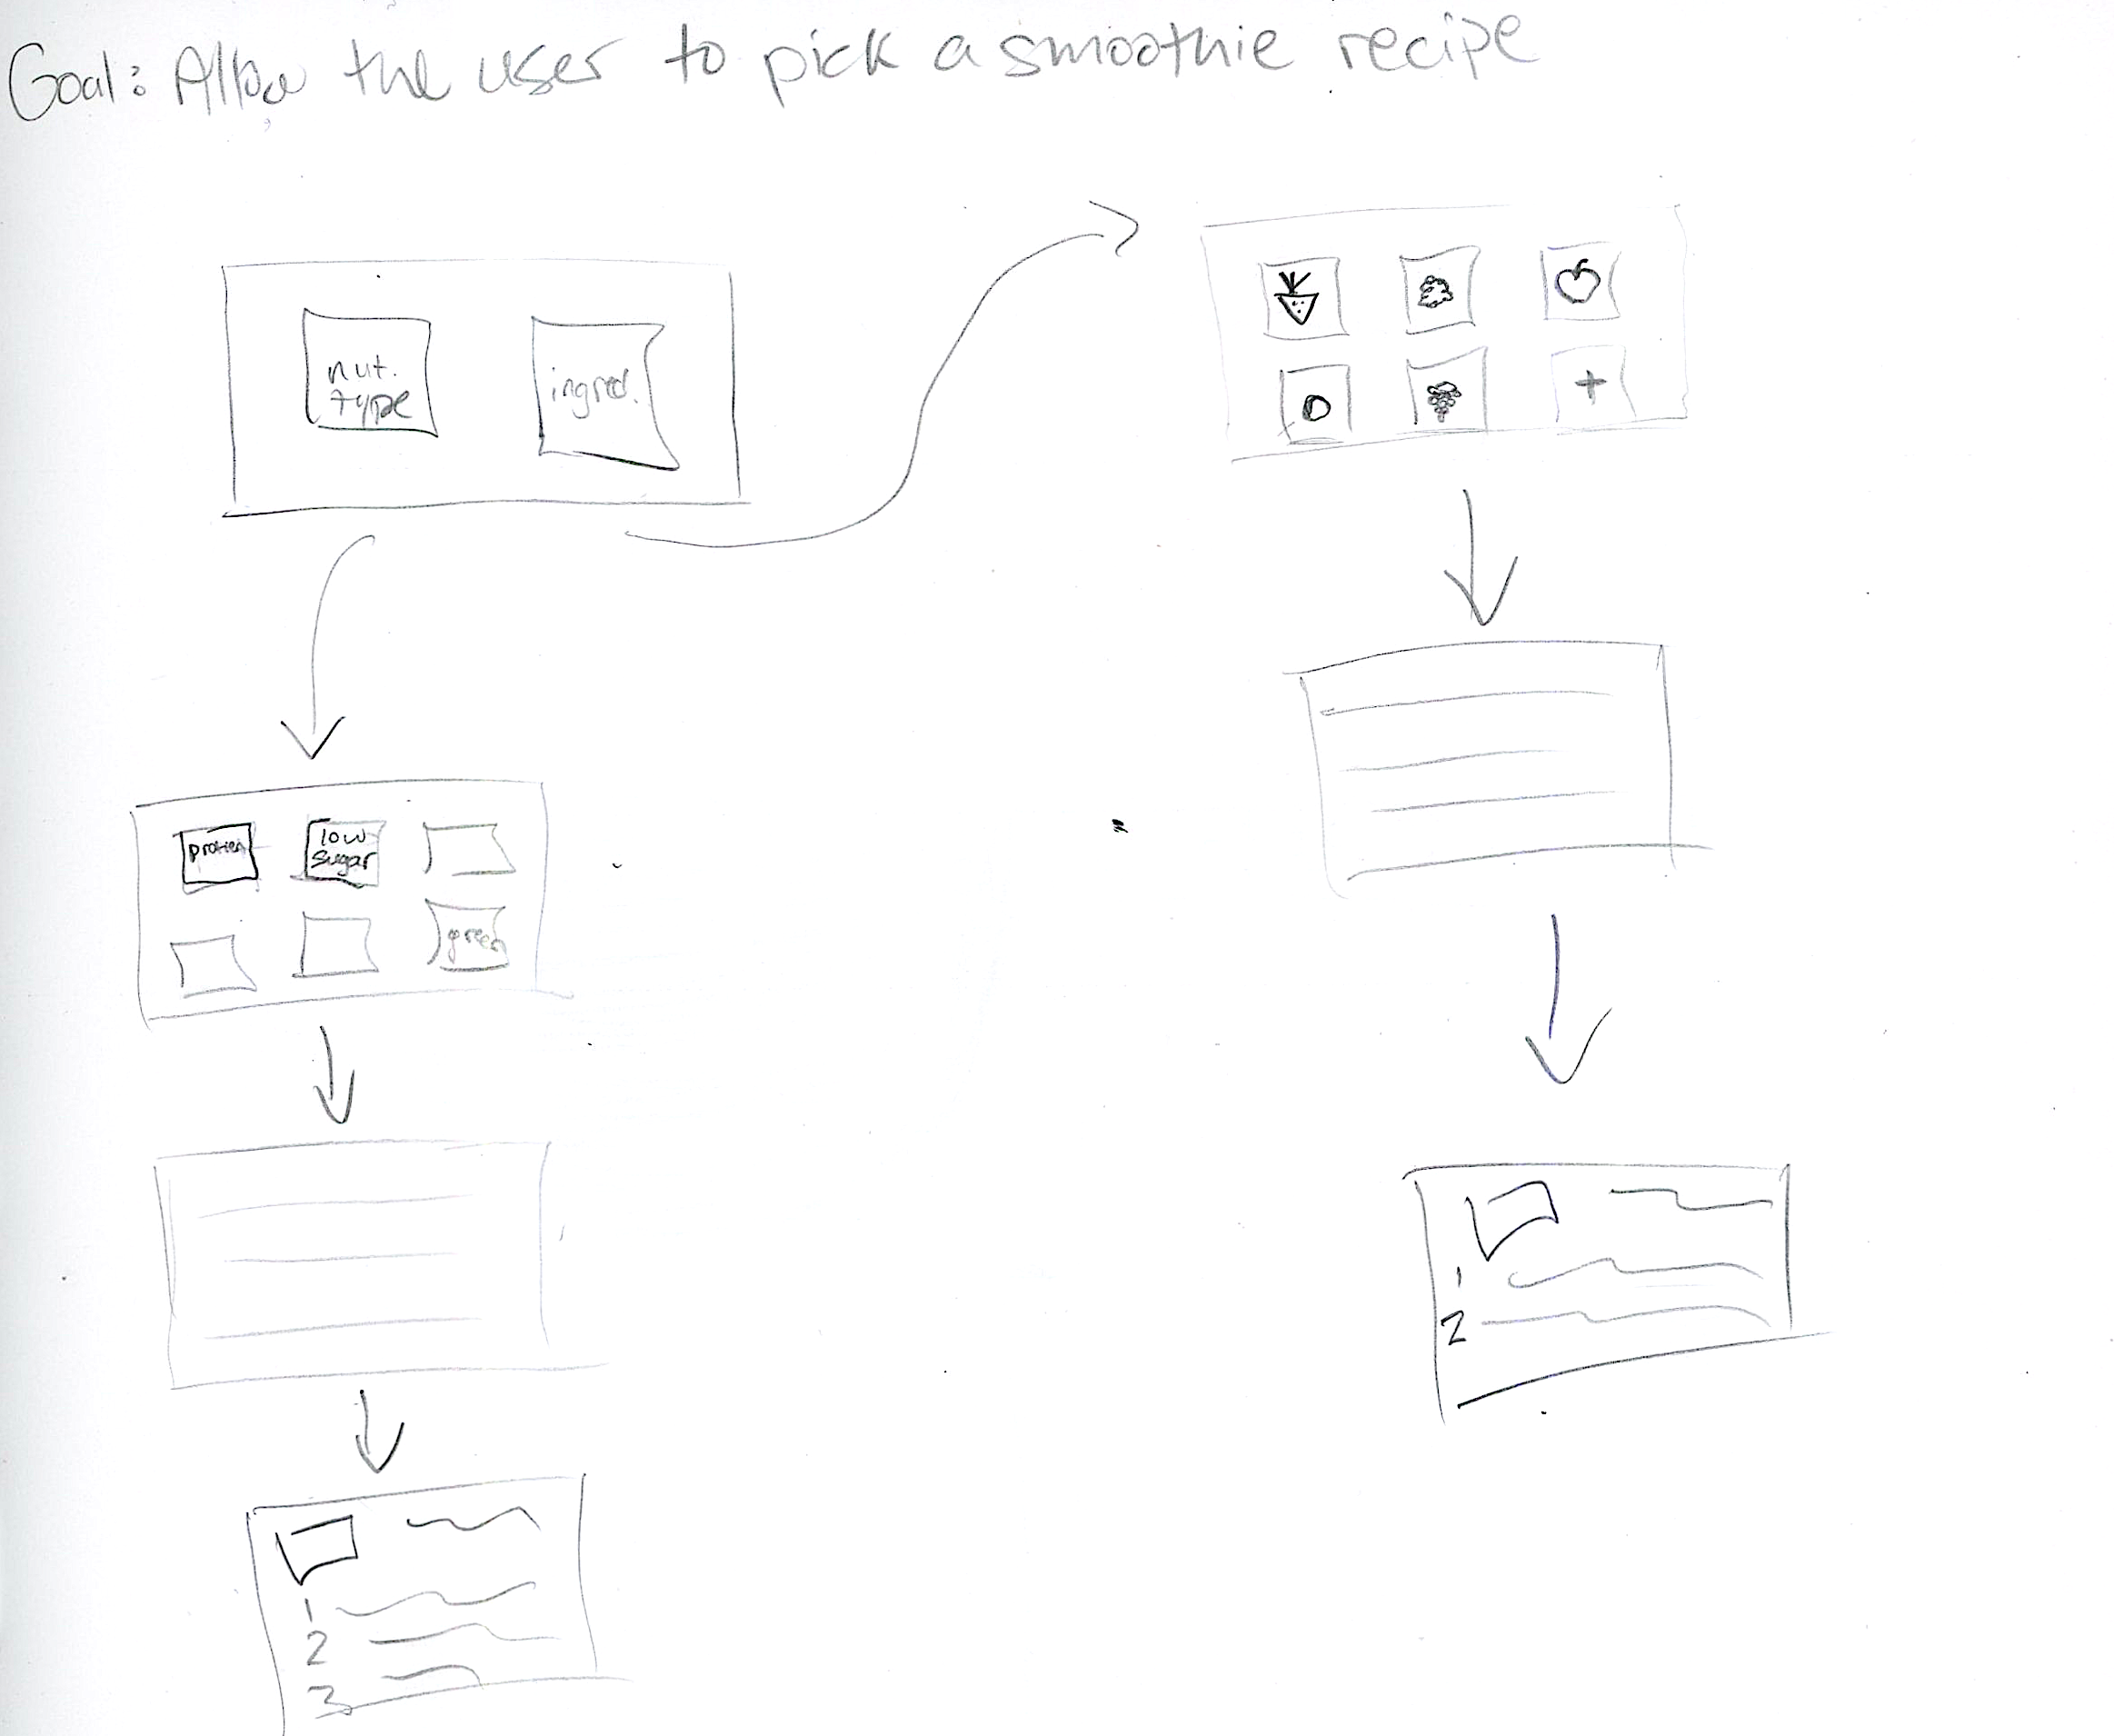 Goal: Allow the user to pick a smoothie recipe
nut.
type
ingred.
+
protien
low
sugar
green
1
2
1
2
3